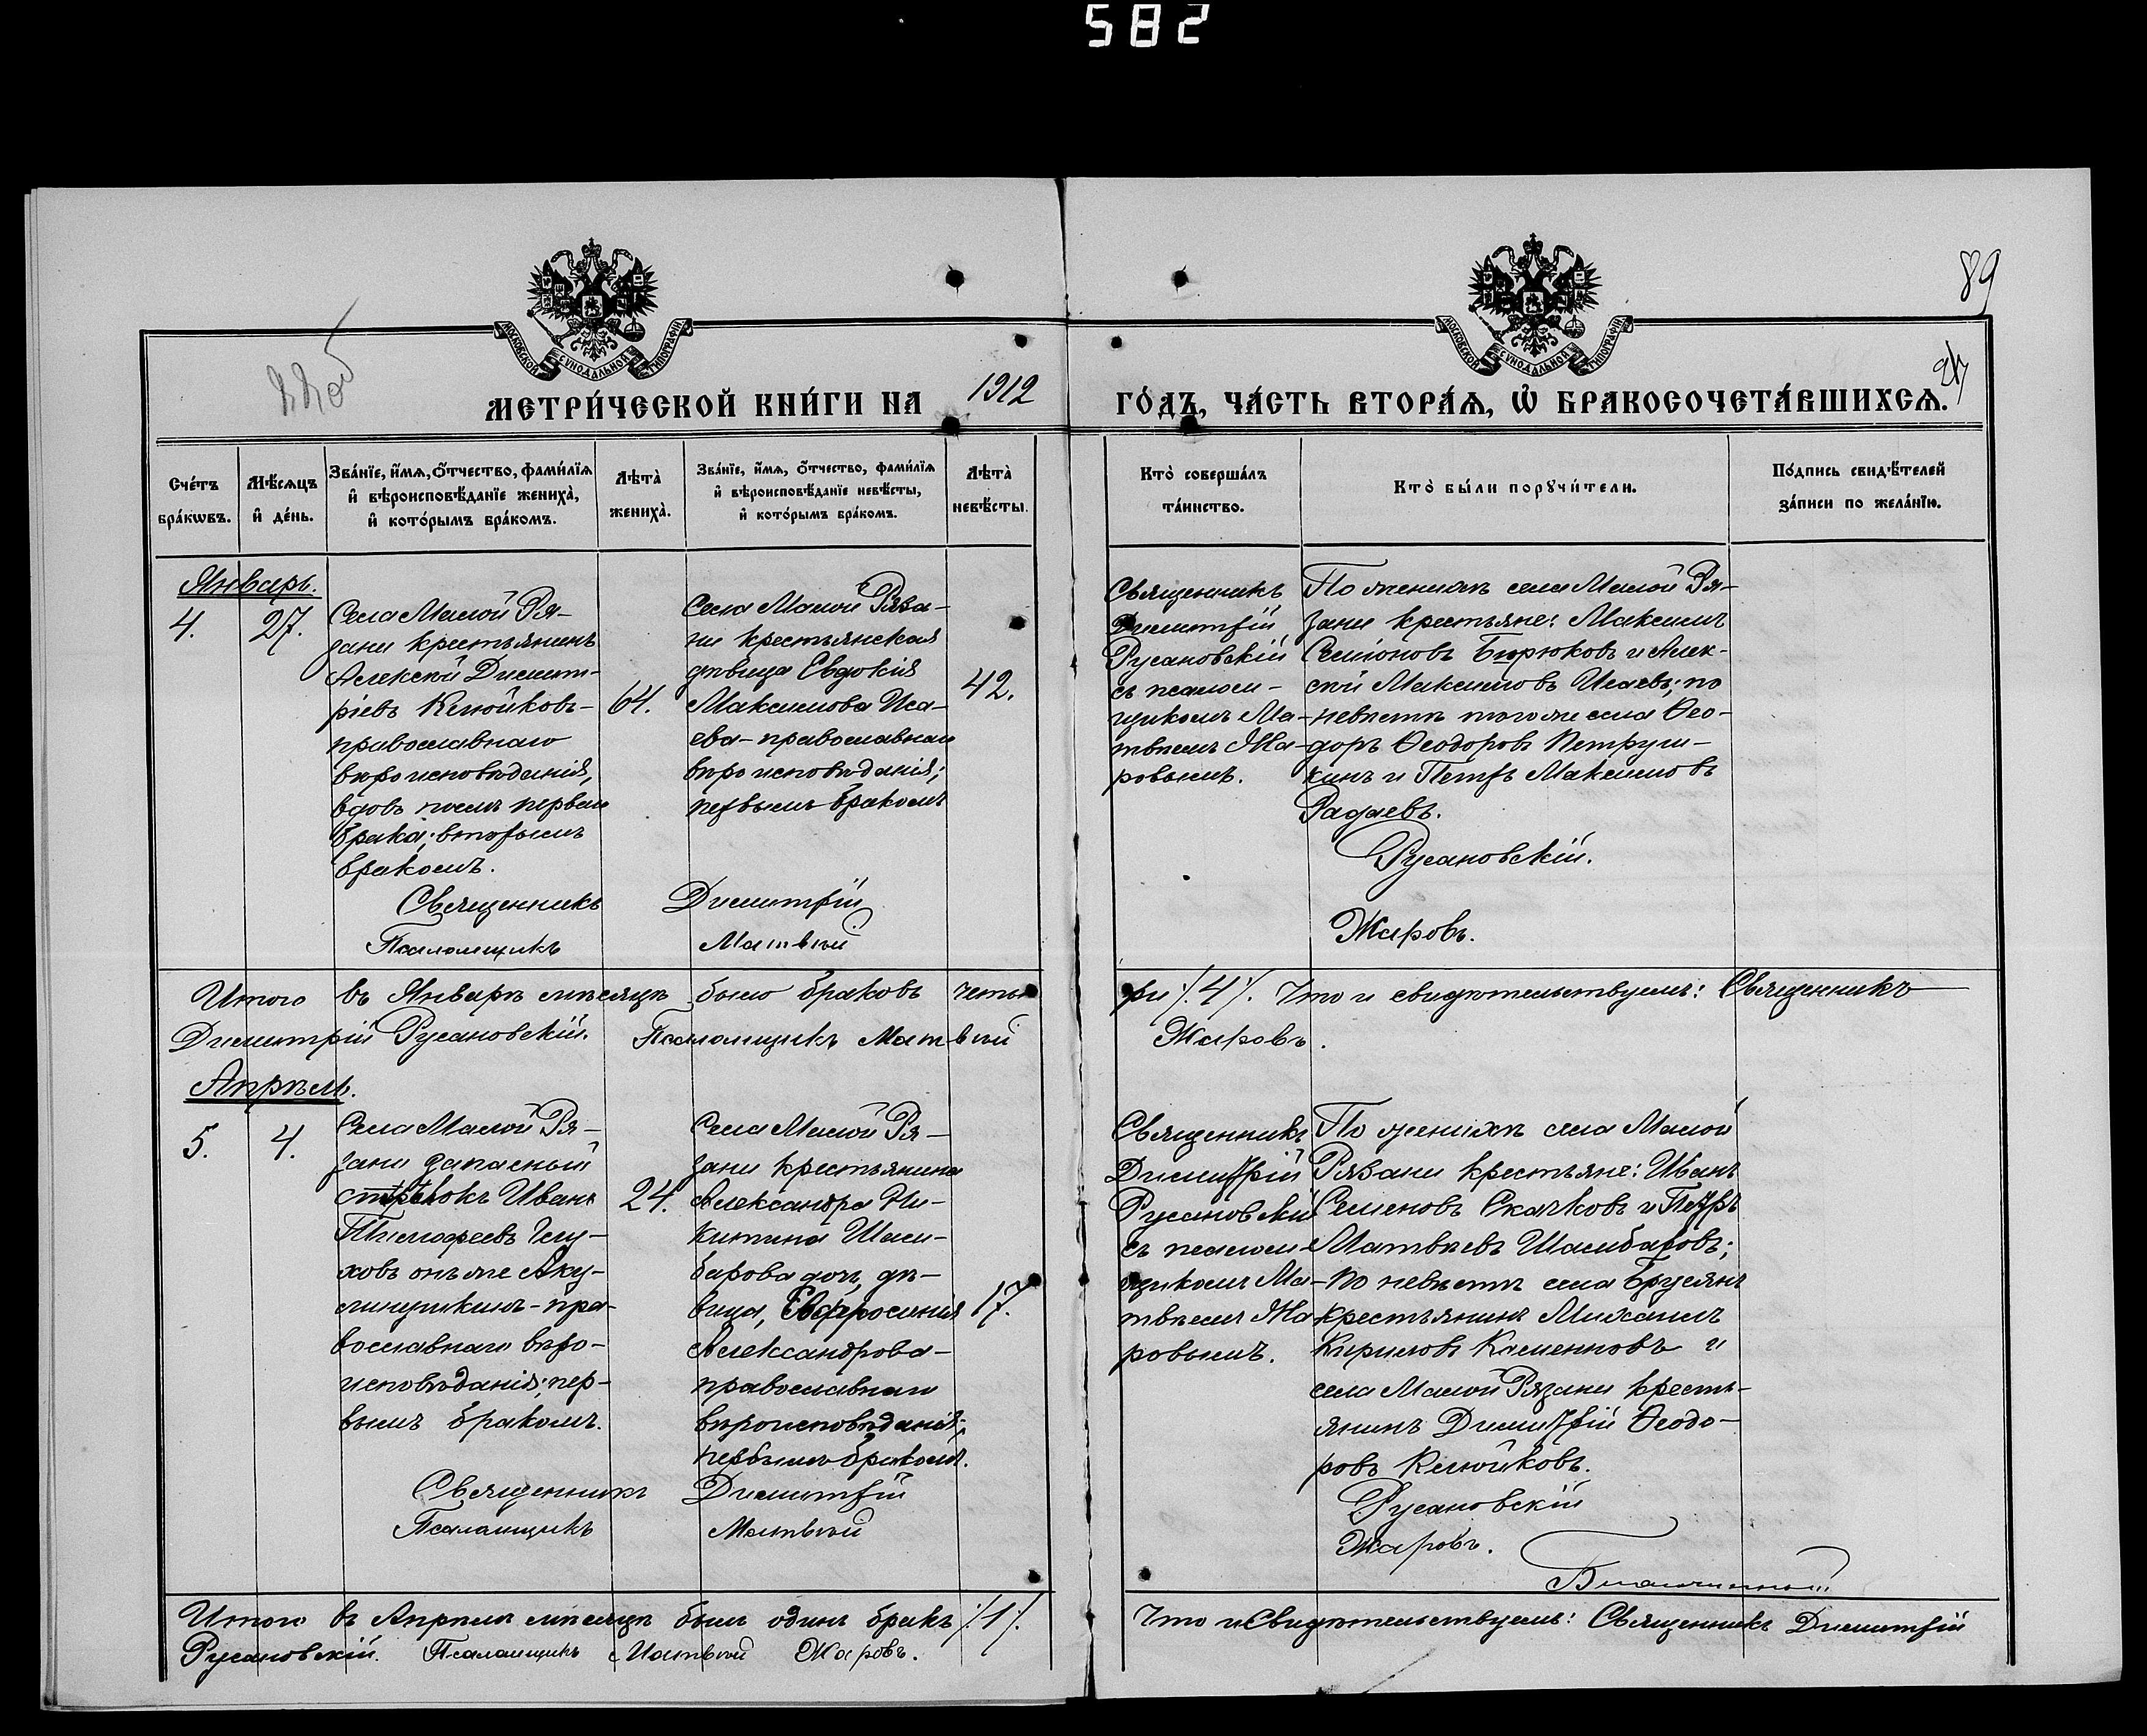 582
89
МОСКОВСКОЙ СУНОДАЛЬНОЙ ТИПОГРАФІИ
МОСКОВСКОЙ СУНОДАЛЬНОЙ ТИПОГРАФІИ
МЕТРИ́ЧЕСКОЙ КНИ́ГИ НА 1912 ГО́ДЪ, ЧА́СТЬ ВТОРА́Ѧ, Ѡ҆ БРАКОСОЧЕТА́ВШИХСѦ.
Сче́тъ
бра́кѡвъ.
Мѣ́сѧцъ
и҆ де́нь.
Зва́нїе, и҆́мѧ, ѻ҆́тчество, фами́лїѧ
и҆ вѣроисповѣ́данїе жениха̀,
и҆ кото́рымъ бра́комъ.
Лѣта̀
жениха̀.
Зва́нїе, и҆́мѧ, ѻ҆́тчество, фами́лїѧ
и҆ вѣроисповѣ́данїе невѣ́сты,
и҆ кото́рымъ бра́комъ.
Лѣта̀
невѣ́сты.
Кто̀ соверша́лъ
та́инство.
Кто̀ бы́ли порꙋчи́тели.
По́дпись свидѣ́телей
за́писи по жела́нїю.
Январь.
4.
27.
Села Малой Ря-
зани крестьянинъ
Алексѣй Димит-
ріевъ Клюйковъ-
православнаго
вѣроисповѣданія,
вдовъ послѣ перваго
брака; вторымъ
бракомъ.
64.
Села Малой Ряза-
ни крестьянская
дѣвица Евдокія
Максимова Иса-
ева-православнаго
вѣроисповѣданія;
первымъ бракомъ
42.
Священникъ
Димитрій
Русановскій
съ псалом-
щикомъ Ма-
твѣемъ Жа-
ровымъ.
По женихѣ села Малой Ря-
зани крестьяне: Максимъ
Семіоновъ Бирюковъ и Алек-
сѣй Максимовъ Исаевъ; по
невѣстѣ того же села Ѳео-
доръ Ѳеодоровъ Петруш-
кинъ и Петръ Максимовъ
Радаевъ.
Священникъ Димитрій Русановскій.
Псаломщикъ Матвѣй Жаровъ.
Итого въ Январѣ мѣсяцѣ было браковъ четы ри ./.4./. Что и свидѣтельствуемъ: Священникъ
Димитрій Русановскій. Псаломщикъ Матвѣй Жаровъ.
Апрѣль.
5.
4.
Села Малой Ря-
зани запасный
стрѣлокъ Иванъ
Тимофеевъ Глу-
ховъ онъ же Аку-
линушкинъ-пра-
вославнаго вѣро-
исповѣданія; пер-
вымъ бракомъ.
24.
Села Малой Ря-
зани крестьянина
Александра Ни-
китина Шам-
барова дочь, дѣ-
вица, Евфросинія
Александрова-
православнаго
вѣроисповѣданія;
первымъ бракомъ.
17.
Священникъ
Димитрій
Русановскій
съ псалом-
щикомъ Ма-
твѣемъ Жа-
ровымъ.
По женихѣ села Малой
Рязани крестьяне: Иванъ
Семеновъ Скачковъ и Петръ
Матвѣевъ Шамбаровъ;
по невѣстѣ села Брусянъ
крестьянинъ Михаилъ
Кириловъ Каменновъ и
села Малой Рязани кресть-
янинъ Димитрій Ѳеодо-
ровъ Клюйковъ.
Священникъ Димитрій Русановскій
Псаломщикъ Матвѣй Жаровъ.
Итого въ Апрѣлѣ мѣсяцѣ былъ одинъ бракъ ./.1./. Что и свидѣтельствуемъ: Священникъ Димитрій
Русановскій. Псаломщикъ Матвѣй Жаровъ.